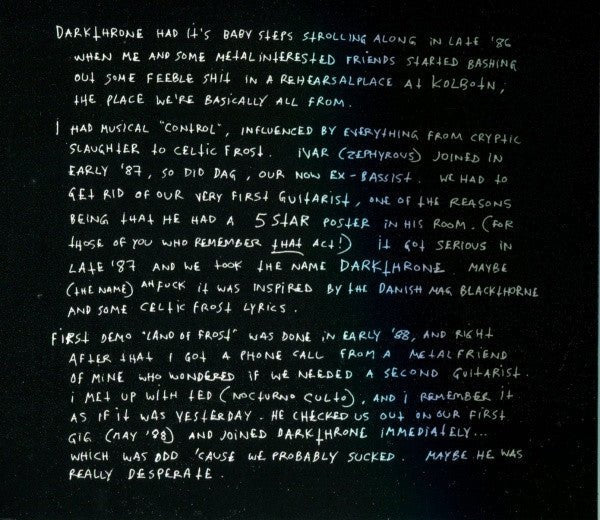 DARKTHRONE HAD IT'S BABY STEPS STROLLING ALONG IN LATE '86
WHEN ME AND SOME METALINTERESTED FRIENDS STARTED BASHING
OUT SOME FEEBLE SHIT IN A REHEARSALPLACE AT KOLBOTN;
THE PLACE WE'RE BASICALLY ALL FROM.
I HAD MUSICAL "CONTROL", INFLUENCED BY EVERYTHING FROM CRYPTIC
SLAUGHTER TO CELTIC FROST. IVAR (ZEPHYROUS) JOINED IN
EARLY '87, SO DID DAG, OUR NOW EX-BASSIST. WE HAD TO
GET RID OF OUR VERY FIRST GUITARIST, ONE OF THE REASONS
BEING THAT HE HAD A 5 STAR POSTER IN HIS ROOM. (FOR
THOSE OF YOU WHO REMEMBER THAT ACT!) IT GOT SERIOUS IN
LATE '87 AND WE TOOK THE NAME DARKTHRONE. MAYBE
(THE NAME) AH FUCK IT WAS INSPIRED BY THE DANISH MAG BLACKTHORNE
AND SOME CELTIC FROST LYRICS.
FIRST DEMO "LAND OF FROST" WAS DONE IN EARLY '88, AND RIGHT
AFTER THAT I GOT A PHONE CALL FROM A METALFRIEND
OF MINE WHO WONDERED IF WE NEEDED A SECOND GUITARIST.
I MET UP WITH TED (NOCTURNO CULTO), AND I REMEMBER IT
AS IF IT WAS YESTERDAY. HE CHECKED US OUT ON OUR FIRST
GIG (MAY '88) AND JOINED DARKTHRONE IMMEDIATELY...
WHICH WAS ODD 'CAUSE WE PROBABLY SUCKED. MAYBE HE WAS
REALLY DESPERATE.